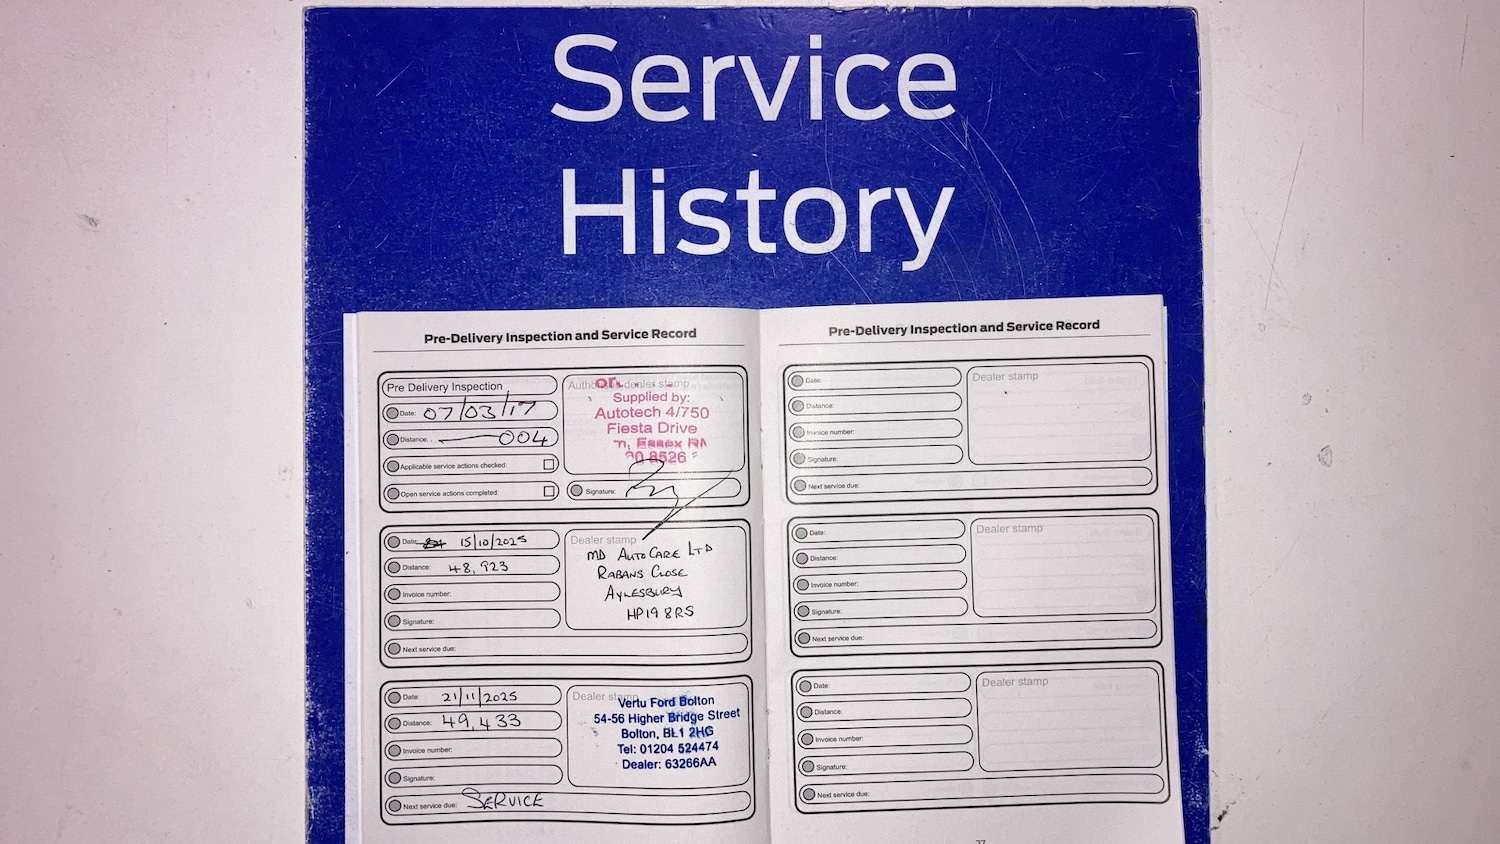 Service
History
Pre-Delivery Inspection and Service Record
Pre Delivery Inspection
Date: 07/03/17
Distance: 004
Applicable service actions checked:
Open service actions completed:
dealer stamp
Supplied by:
Autotech 4/750
Fiesta Drive
Essex
8526
Signature:
Date: 15/10/2025
Distance: 48,923
Invoice number:
Signature:
Next service due:
Dealer stamp
MD AUTOCARE LTD
RABANS CLOSE
AYLESBURY
HP19 8RS
Date: 21/11/2025
Distance: 49,433
Invoice number:
Signature:
Next service due: SERVICE
Dealer stamp
Vertu Ford Bolton
54-56 Higher Bridge Street
Bolton, BL1 2HG
Tel: 01204 524474
Dealer: 63266AA
Pre-Delivery Inspection and Service Record
Date:
Distance:
Invoice number:
Signature:
Next service due:
Dealer stamp
Date:
Distance:
Invoice number:
Signature:
Next service due:
Dealer stamp
Date:
Distance:
Invoice number:
Signature:
Next service due:
Dealer stamp